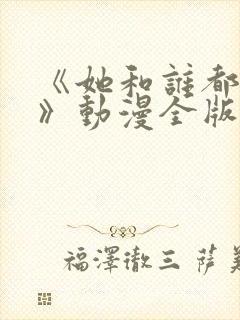 《她和誰都
》動漫全版
福澤徹三 薩美